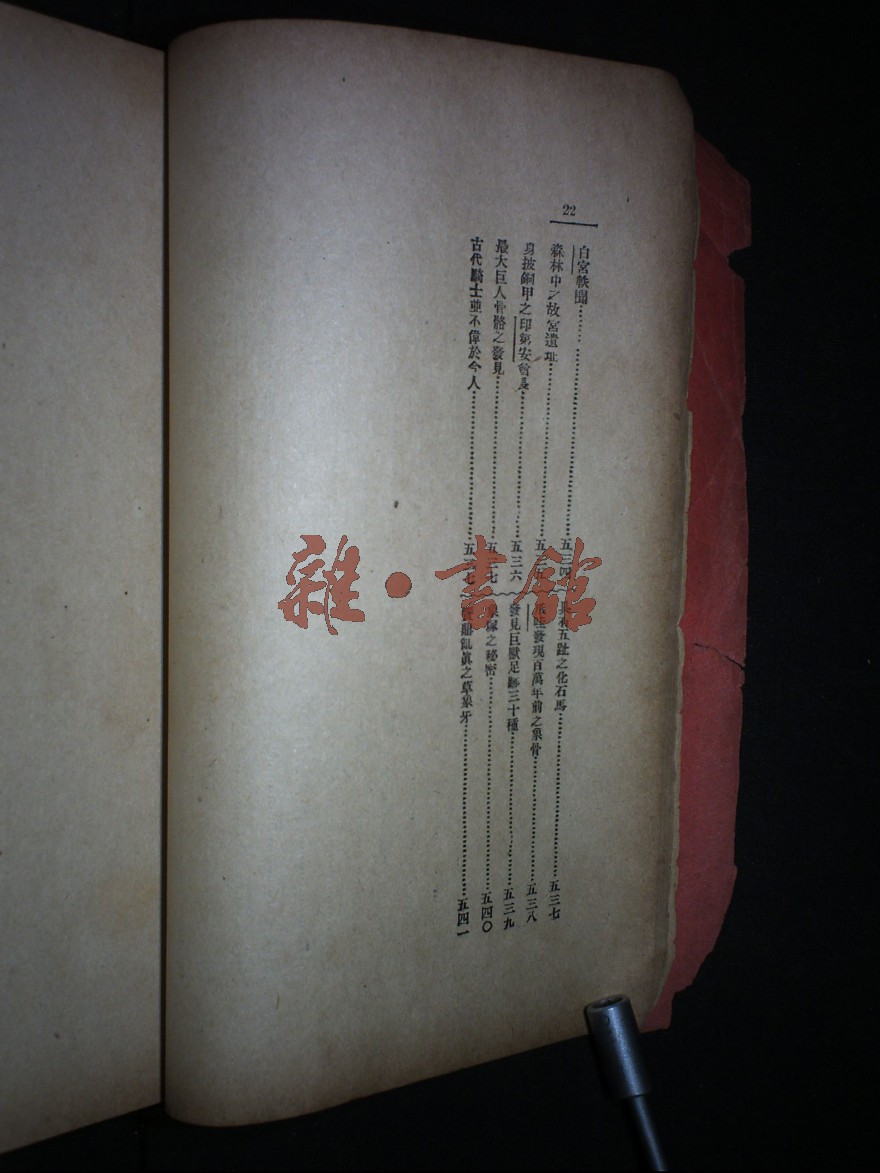 22
白宮軼聞……五三四
森林中之故宮遺址……五三
身披銅甲之印第安酋長……五三六
最大巨人骨骼之發見……五三七
古代騎士並不偉於今人……五三七
具有五趾之化石馬……五三七
發現百萬年前之象骨……五三八
發見巨獸足跡三十種……五三九
之秘密……五四〇
亂眞之草象牙……五四一
雜·書館